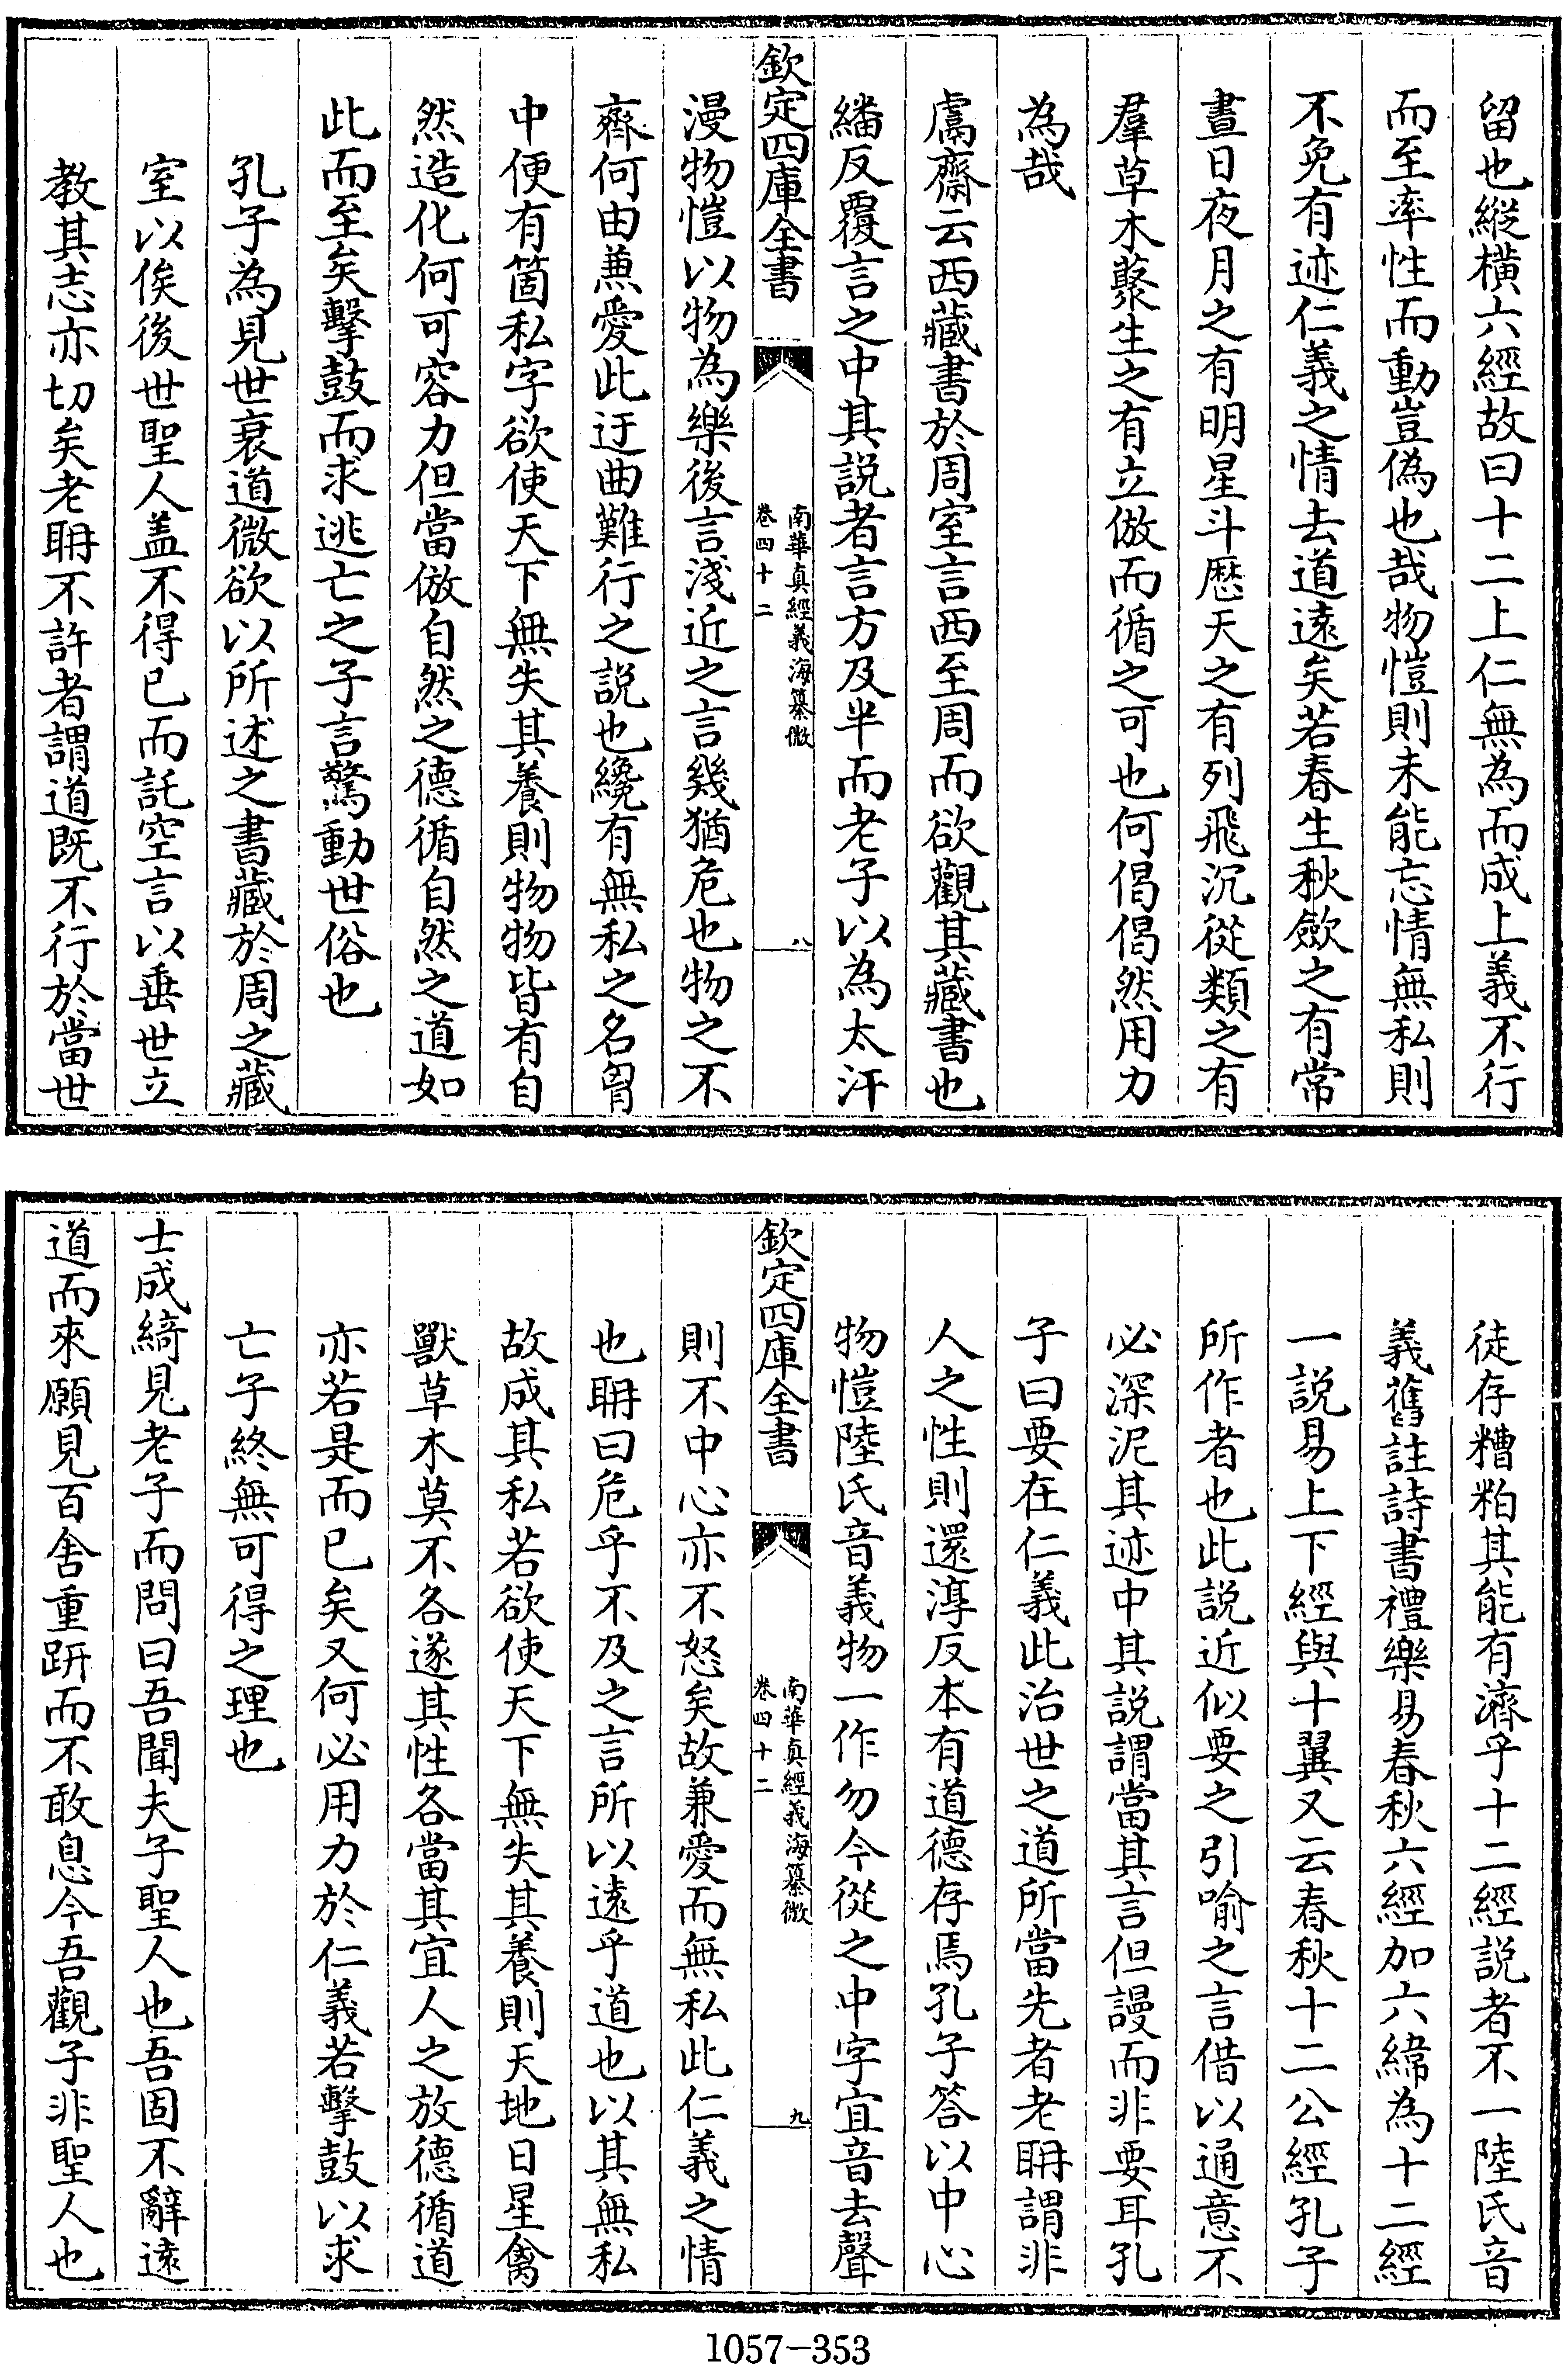 留也縱橫六經故曰十二上仁無為而成上義不行
而至率性而動豈偽也哉物愷則未能忘情無私則
不免有迹仁義之情去道遠矣若春生秋斂之有常
晝日夜月之有明星斗厯天之有列飛沉從類之有
羣草木藂生之有立倣而循之可也何偈偈然用力
為哉
鬳齋云西藏書於周室言西至周而欲觀其藏書也
繙反覆言之中其説者言方及半而老子以為太汗
欽定四庫全書
南華真經義海纂微
卷四十二
八
漫物愷以物為樂後言淺近之言幾猶危也物之不
齊何由兼愛此迂曲難行之説也纔有無私之名胷
中便有箇私字欲使天下無失其養則物物皆有自
然造化何可容力但當倣自然之德循自然之道如
此而至矣擊鼓而求逃亡之子言驚動世俗也
孔子為見世衰道微欲以所述之書藏於周之藏
室以俟後世聖人盖不得已而託空言以垂世立
教其志亦切矣老耼不許者謂道既不行於當世
徒存糟粕其能有濟乎十二經説者不一陸氏音
義舊註詩書禮樂易春秋六經加六緯為十二經
一説易上下經與十翼又云春秋十二公經孔子
所作者也此説近似要之引喻之言借以通意不
必深泥其迹中其説謂當其言但謾而非要耳孔
子曰要在仁義此治世之道所當先者老耼謂非
人之性則還淳反本有道德存焉孔子答以中心
物愷陸氏音義物一作勿今從之中字宜音去聲
欽定四庫全書
南華真經義海纂微
卷四十二
九
則不中心亦不怒矣故兼愛而無私此仁義之情
也耼曰危乎不及之言所以遠乎道也以其無私
故成其私若欲使天下無失其養則天地日星禽
獸草木莫不各遂其性各當其宜人之放德循道
亦若是而已矣又何必用力於仁義若擊鼓以求
亡子終無可得之理也
士成綺見老子而問曰吾聞夫子聖人也吾固不辭遠
道而來願見百舍重趼而不敢息今吾觀子非聖人也
1057-353